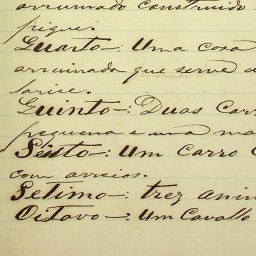 arrumado construido
piques.
Quarto-: Uma casa
arruinada que serve d
Quinto-: Duas Carr
pequena e uma ma
Seisto-: Um Carro
com arreios.
Setimo-: trez anim
Oitavo-: Um Cavallo